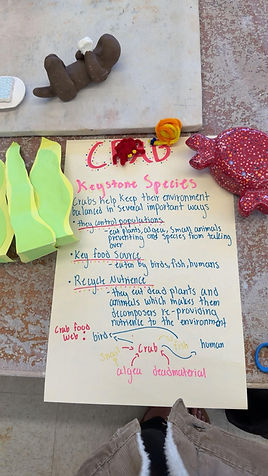 CRAB
Keystone Species
Crabs help keep their environment
balanced in several important ways
• they control populations
- eat plants, algea, small animals
preventing and species from talking
over
• Key food Source
- eaten by birds, fish, humans
• Recycle Nutrience
- they eat dead plants and
animals which makes them
decomposers re-providing
nutrience to the environment
Crab food
web:
birds
fish
human
snails
Crab
algea
dead material